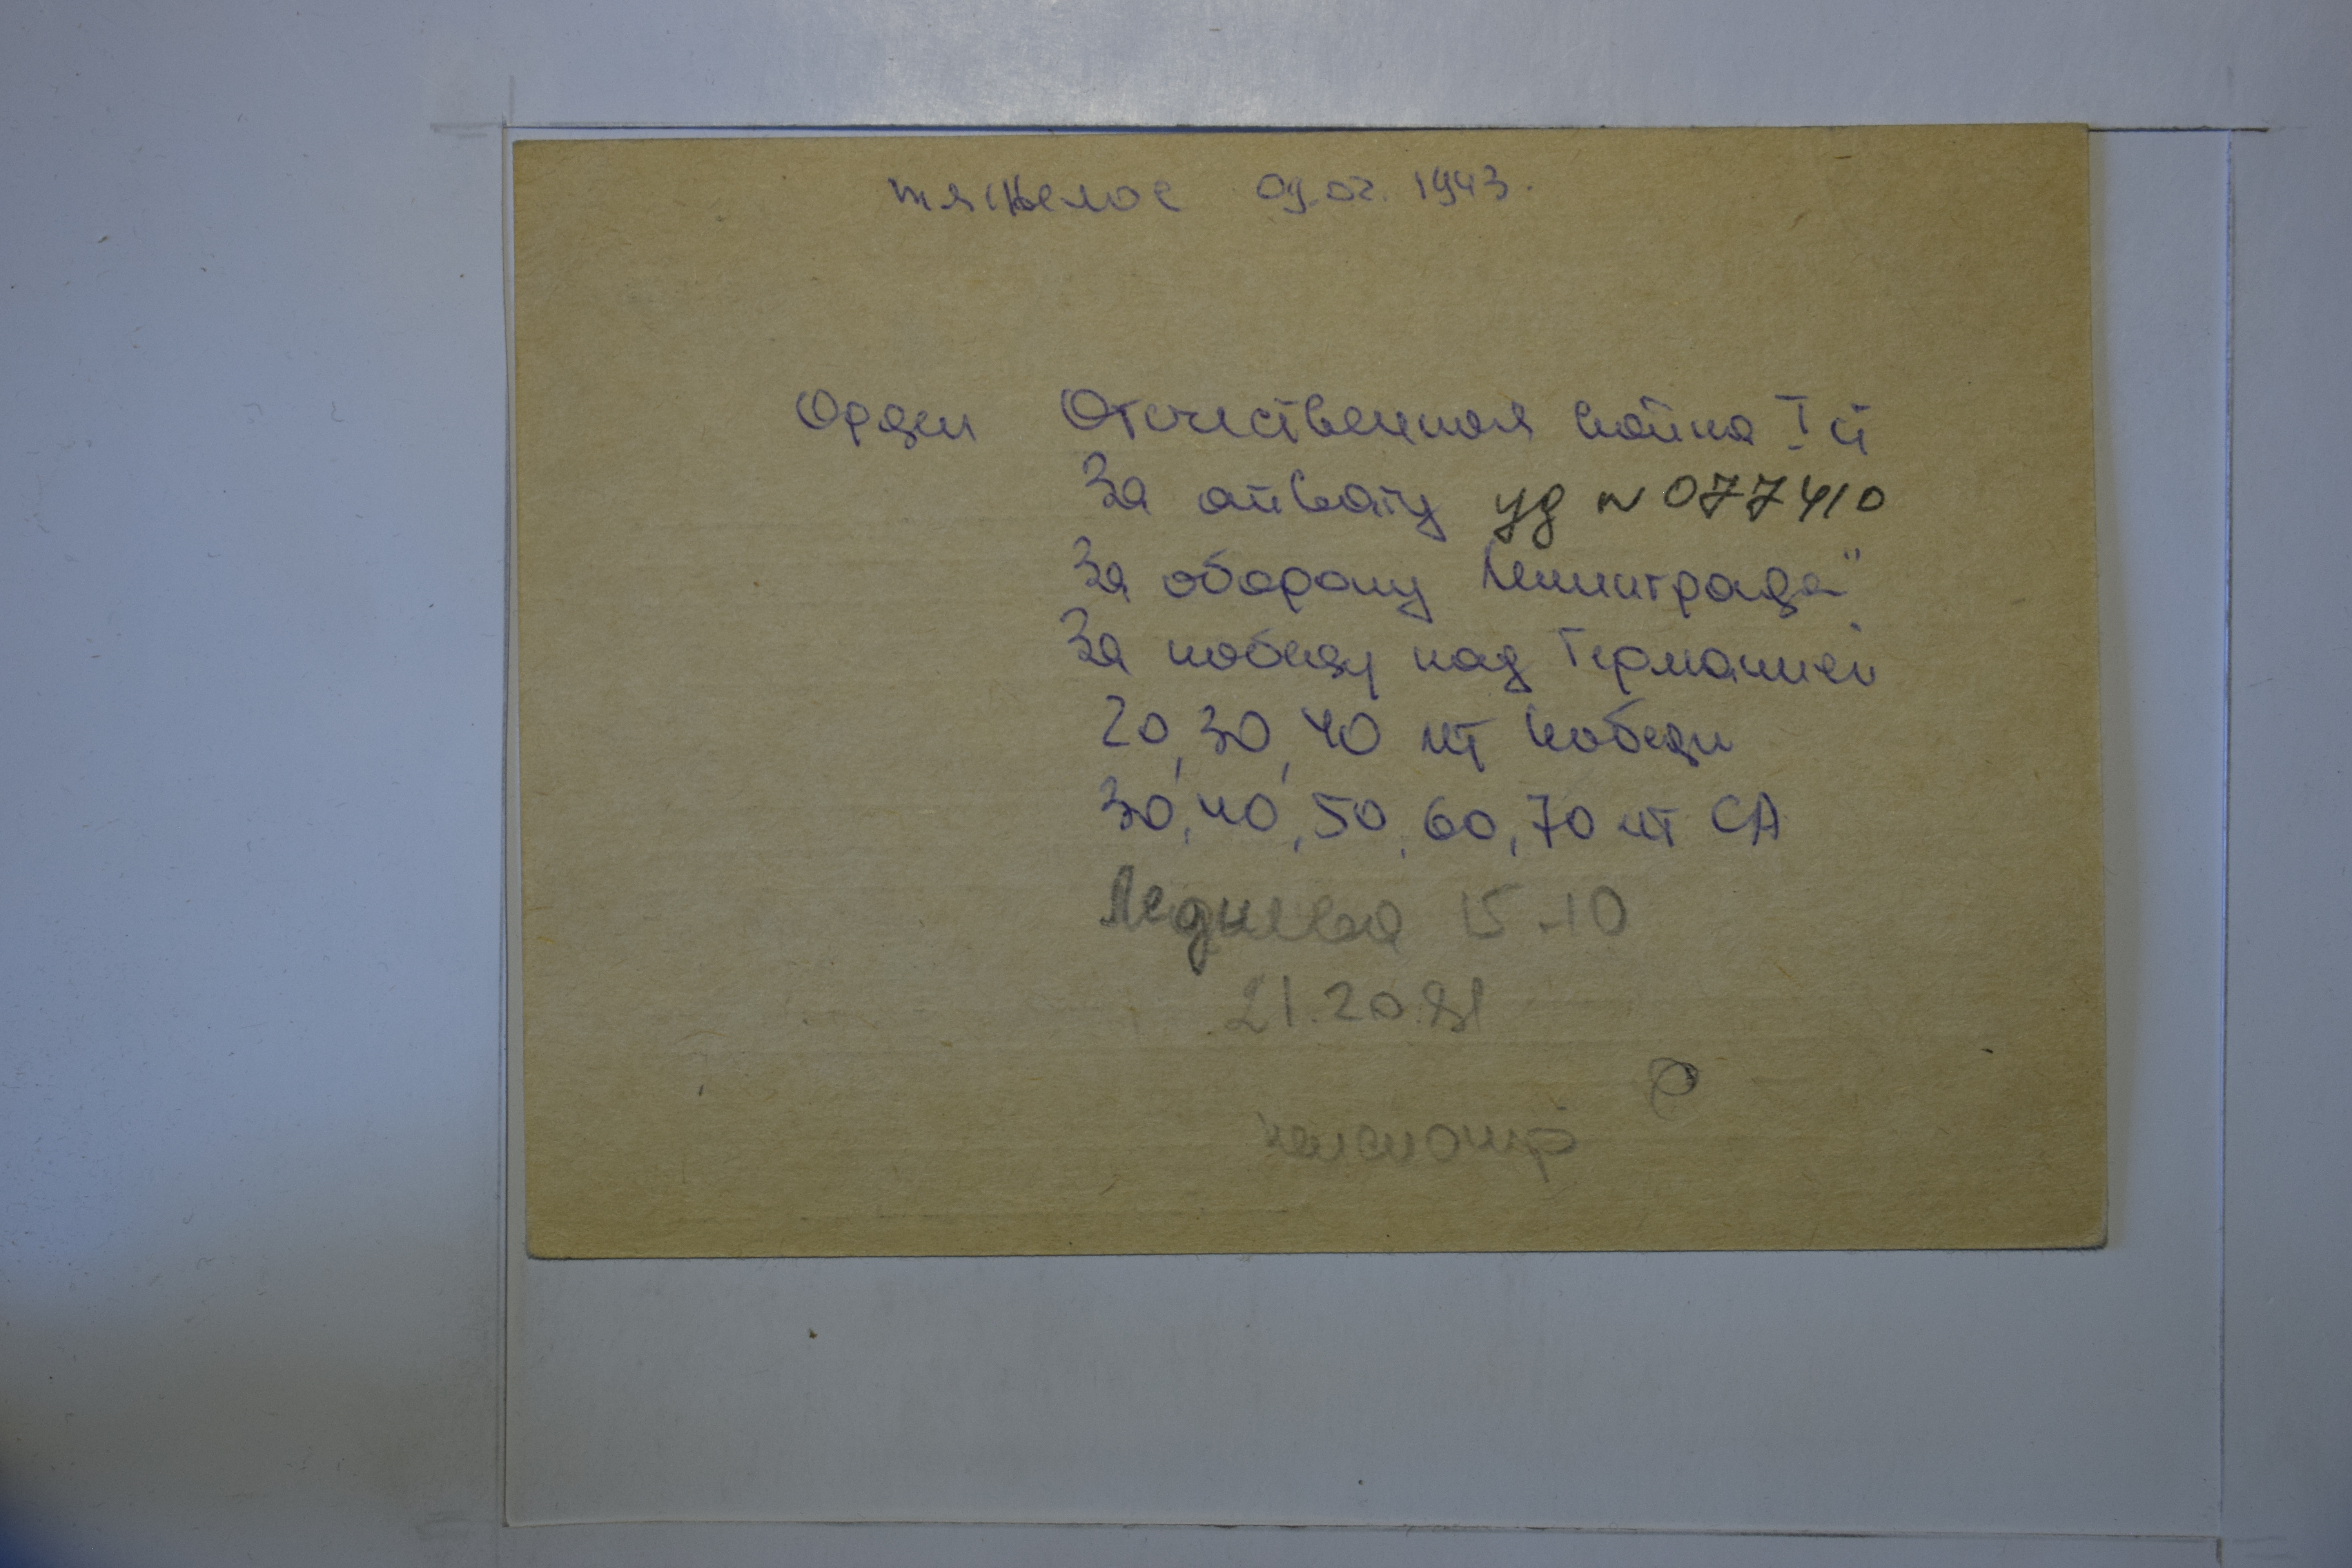 тяжелое 09.02. 1943.
Орден Отечественная война I ст
За отвагу уд № 077410
За оборону Ленинграда"
За победу над Германией
20, 30, 40 лт Победы
30, 40, 50, 60, 70 лт СА
Леднева 15-10
21.20.81